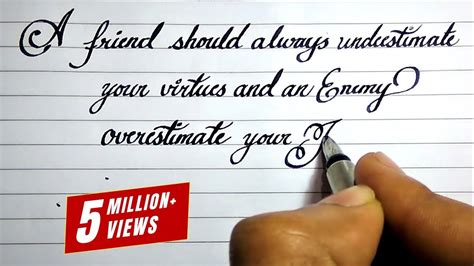 A friend should always underestimate
your virtues and an Enemy
overestimate your
5 MILLION+
VIEWS